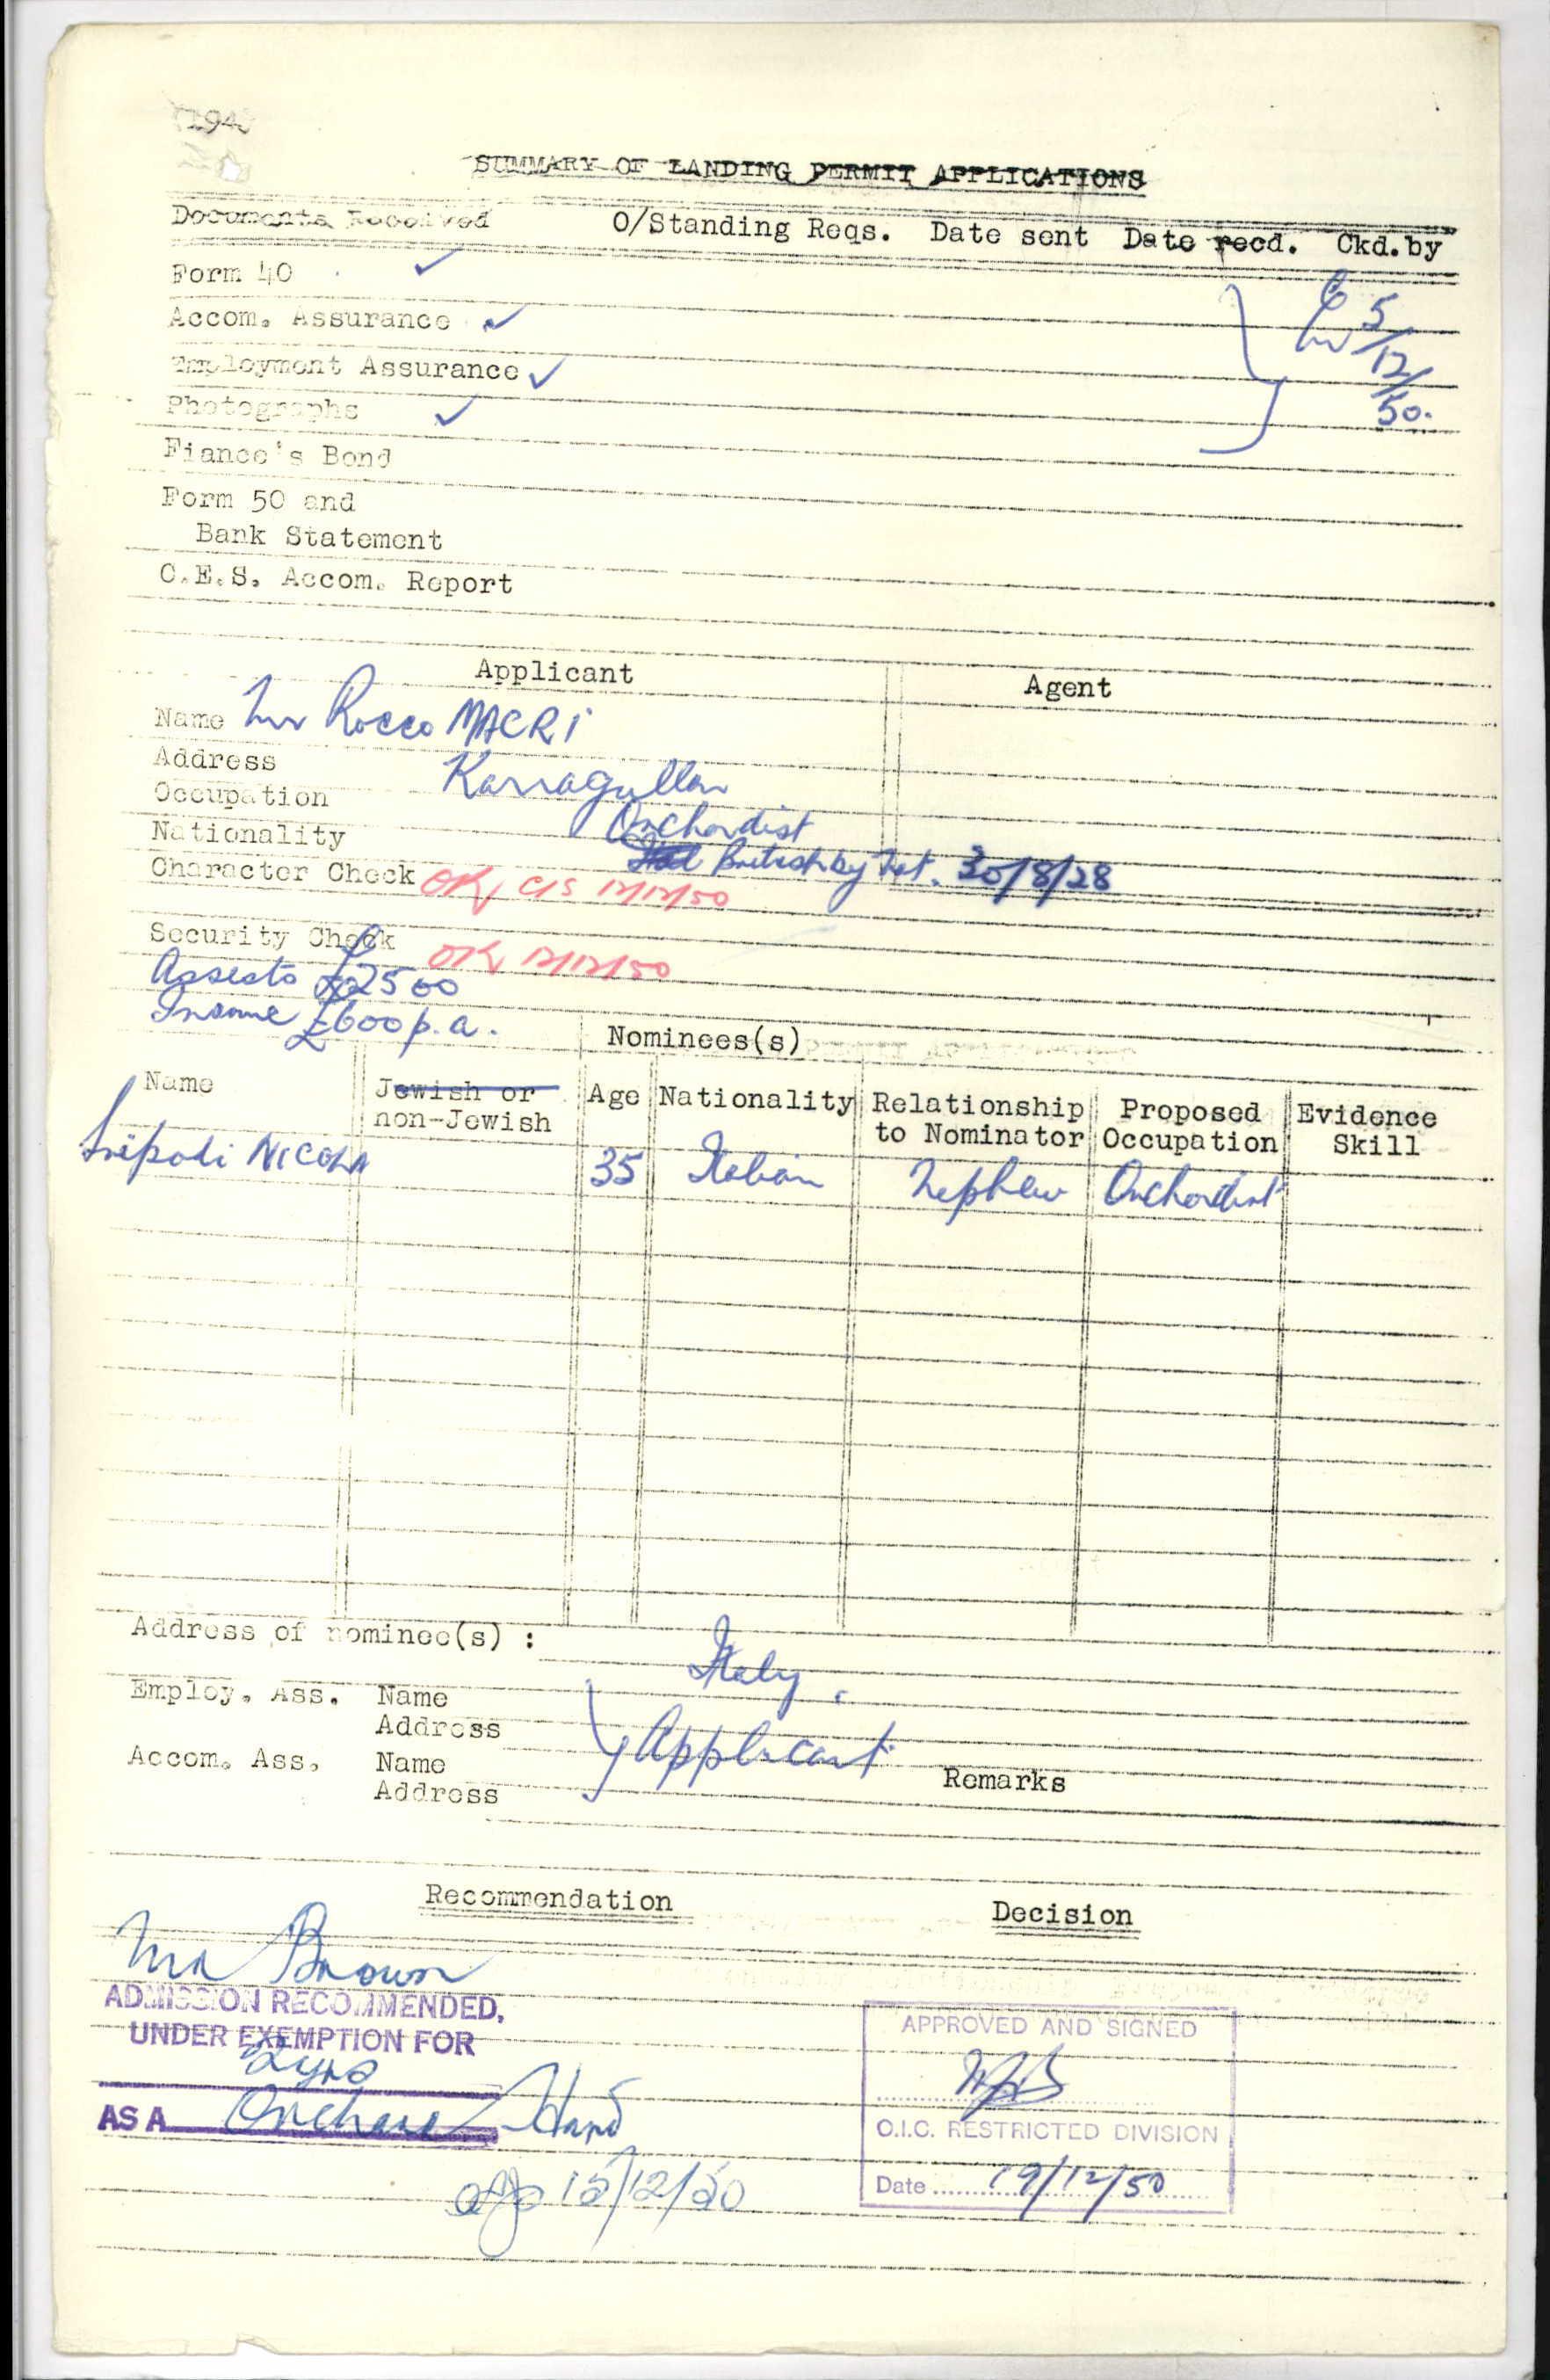 SUMMARY OF LANDING PERMIT APPLICATIONS
Documents Received O/Standing Reqs. Date sent Date recd. Ckd.by
Form 40 ✓
Accom. Assurance ✓ 5/12/50.
Employment Assurance ✓
Photographs ✓
Fiance's Bond
Form 50 and
Bank Statement
C.E.S. Accom. Report
Applicant Agent
Name Mr Rocco MACRI
Address Karragullen
Occupation Orchardist
Nationality British by Nat. 30/8/28
Character Check OK CIS 12/12/50
Security Check OK 12/12/50
Assests £2500
Income £600 p.a.
Nominees(s)
Name Jewish or non-Jewish Age Nationality Relationship to Nominator Proposed Occupation Evidence Skill
Tripodi NICOLA 35 Italian Nephew Orchardist
Address of nominee(s) : Italy.
Employ. Ass. Name
Address
Applicant
Accom. Ass. Name
Address
Remarks
Recommendation Decision
Mr Brown
ADMISSION RECOMMENDED,
UNDER EXEMPTION FOR
2 yrs
AS A Orchard Hand
15/12/50
APPROVED AND SIGNED
O.I.C. RESTRICTED DIVISION
Date 19/12/50